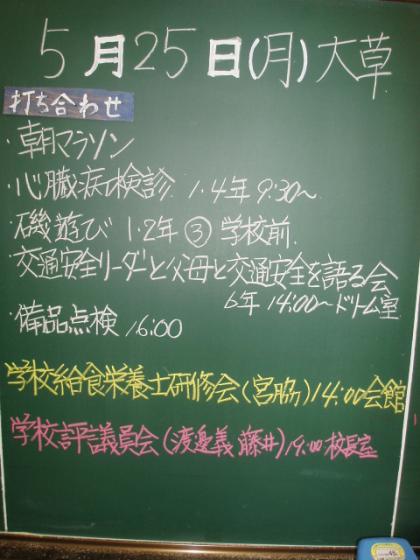 5月25日(月)大草
打ち合わせ
・朝マラソン
・心臓病検診 1・4年 9:30〜
・磯遊び 1・2年 ③ 学校前
・交通安全リーダと父母と交通安全を語る会
6年 14:00〜 ドトム室
・備品点検 16:00
学校給食栄養士研修会(宮脇)14:00会館
学校評議員会(渡邉義 藤井)19:00校長室